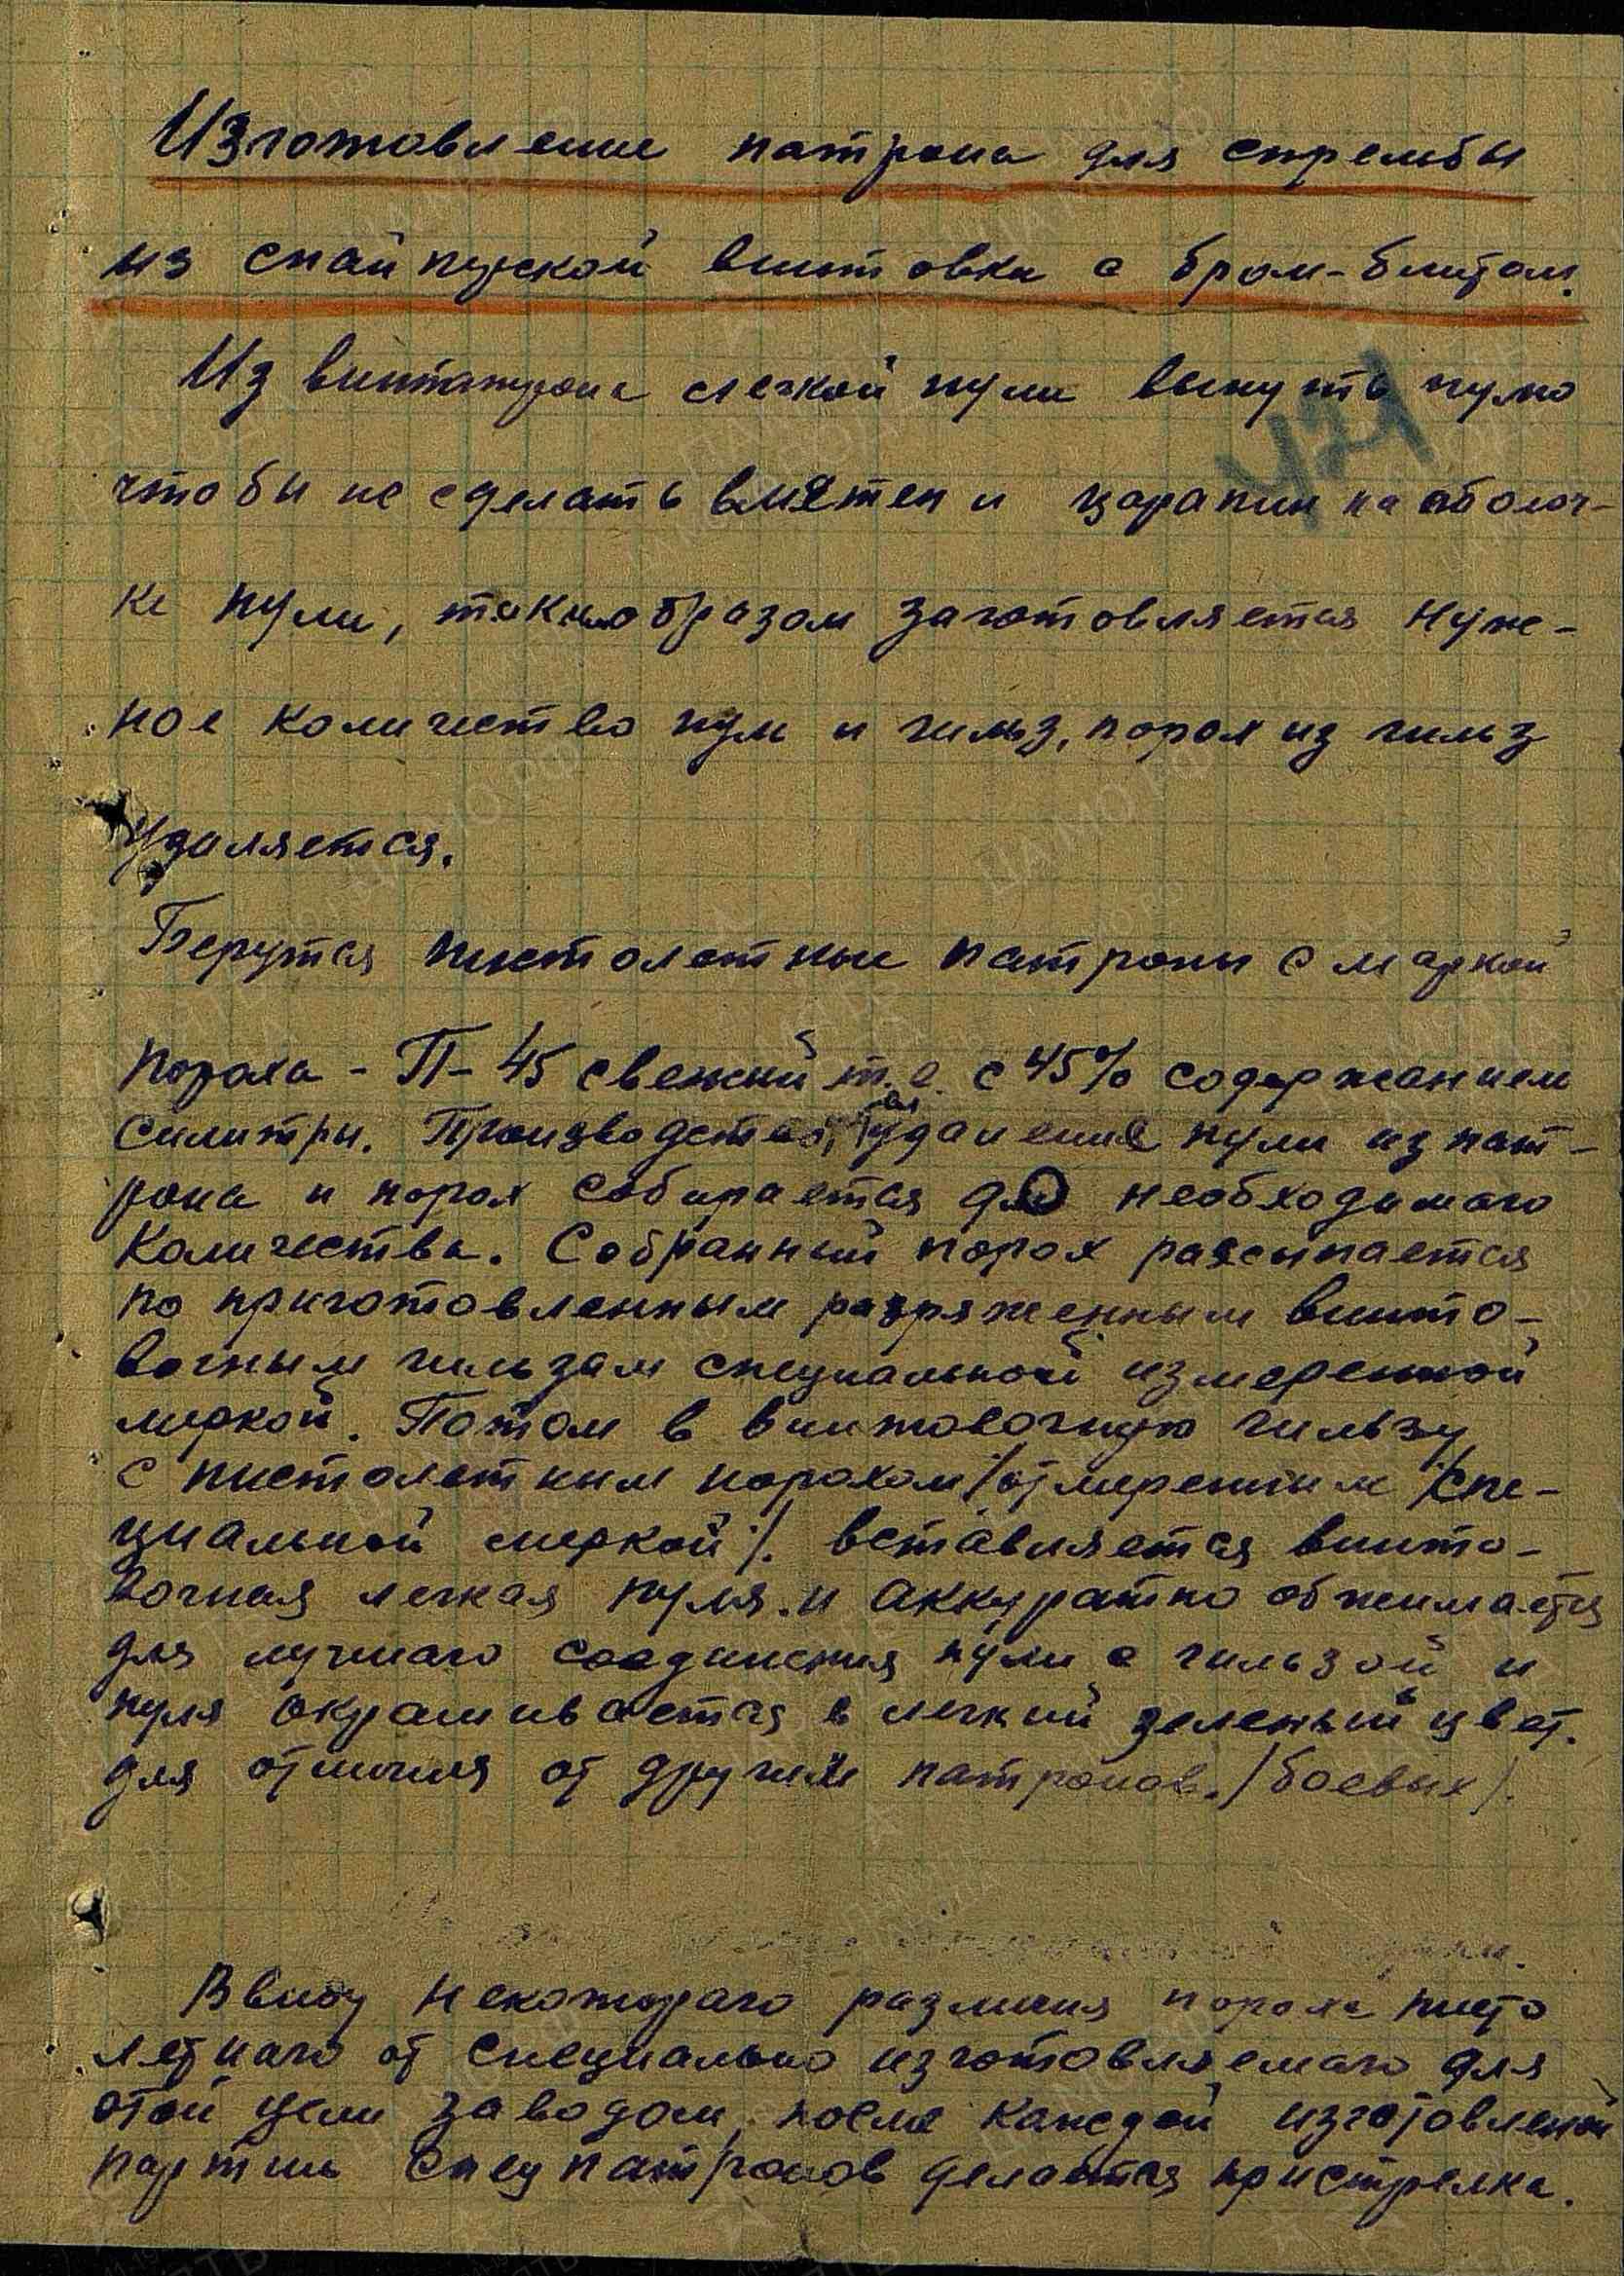 Изготовление патрона для стрельбы
из снайперской винтовки с брам-блитом.
Из винтпатрона с легкой пули вынуть пулю
чтобы не сделать вмятен и царапин на оболоч-
ке пули, таким образом заготовляется нуж-
ное количество пуль и гильз, порох из гильз
удаляется.
Берутся пистолетные патроны с маркой
пороха - П-45 свежий т.е. с 45% содержанием
силитры. Производства, удаление пули из пат-
рона и порох собирается до необходимого
количества. Собранный порох рассыпается
по приготовленным разряженным винто-
вочным гильзам специальной измеренной
меркой. Потом в винтовочную гильзу
с пистолетным порохом /отмеренным спе-
циальной меркой/. вставляется винто-
вочная легкая пуля. и аккуратно обжимается
для лучшаго соединения пули с гильзой и
пуля окрашивается в легкий зеленый цвет.
для отличия от других патронов. /боевых/.
Ввиду некотораго различия пороха писто
летнаго от специально изготовляемаго для
этой цели заводом, после каждой изготовленой
партии спецпатронов делается пристрелка.